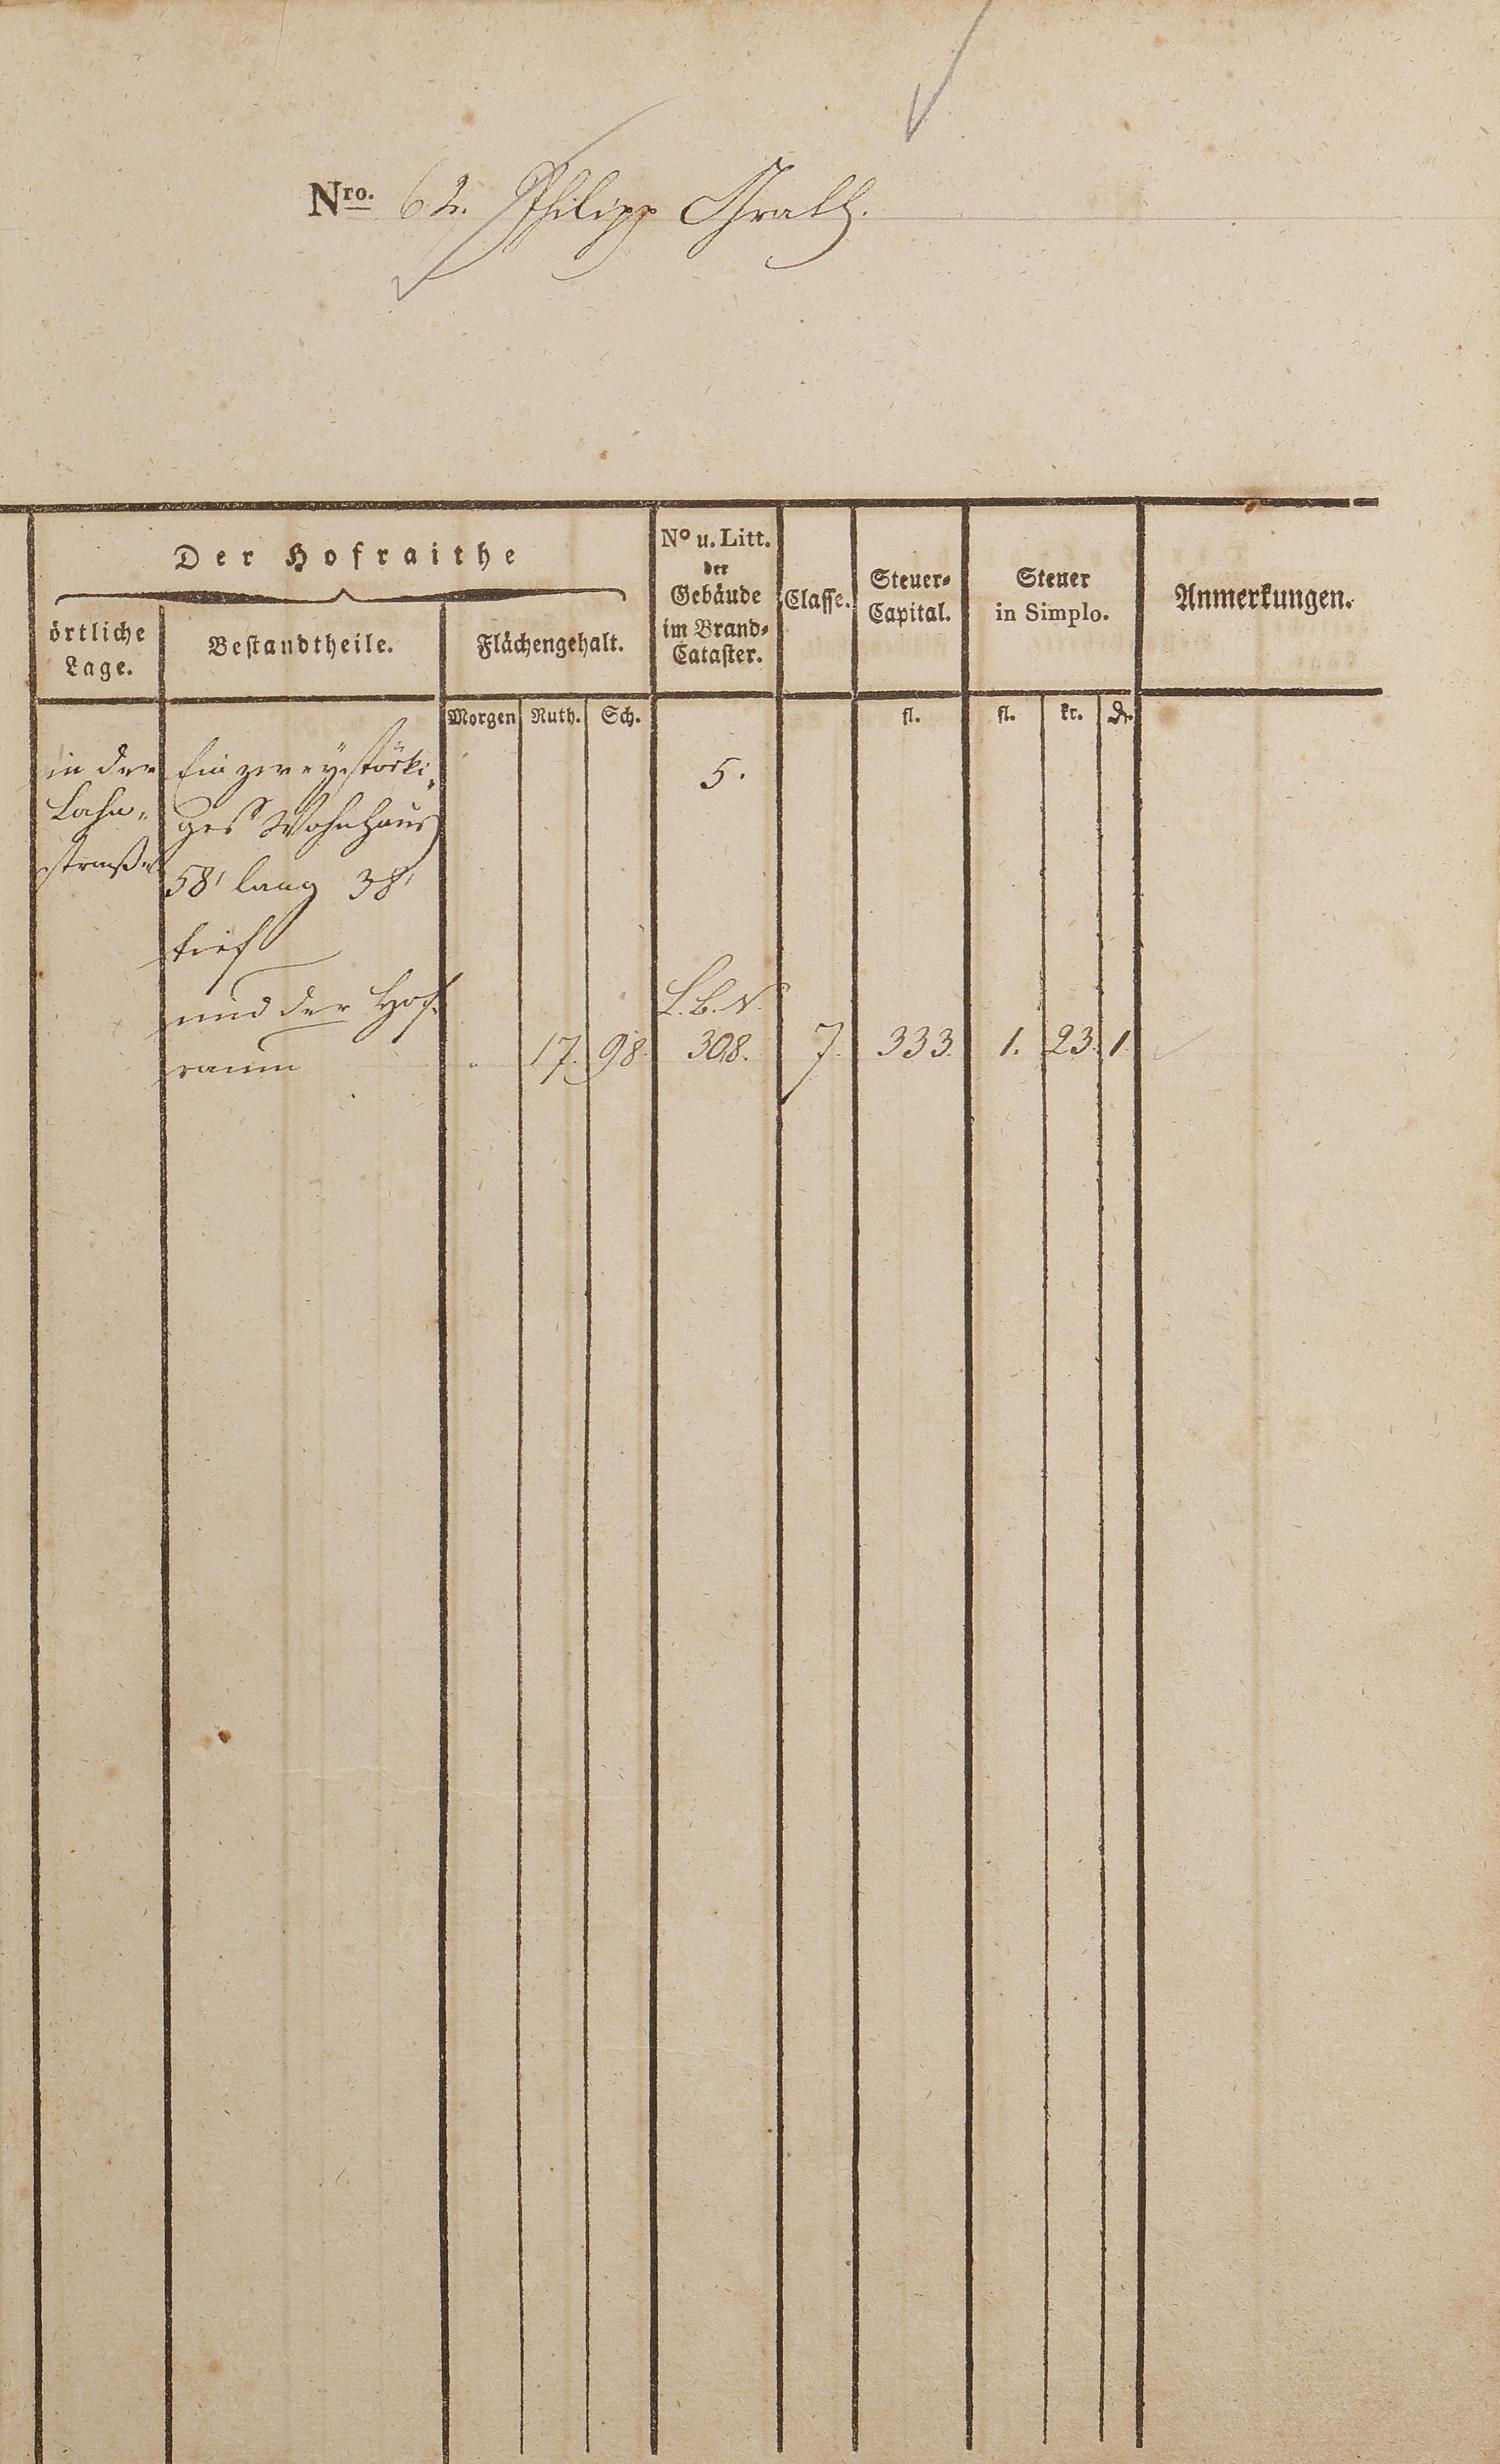 Nro. 62. Philipp Grath.
Der Hofraithe
örtliche
Lage.
Bestandtheile.
Flächengehalt.
No u. Litt.
der
Gebäude
im Brand-
Cataster.
Classe.
Steuer-
Capital.
Steuer
in Simplo.
Anmerkungen.
Morgen Ruth. Sch. fl. fl. kr. d.
in der
Lahn-
straße
Ein zweystöcki-
ges Wohnhaus
58' lang 38'
tief
und der Hof-
raum
5.
L. b. N.
" 17. 98. 308. 7. 333. 1. 23. 1.